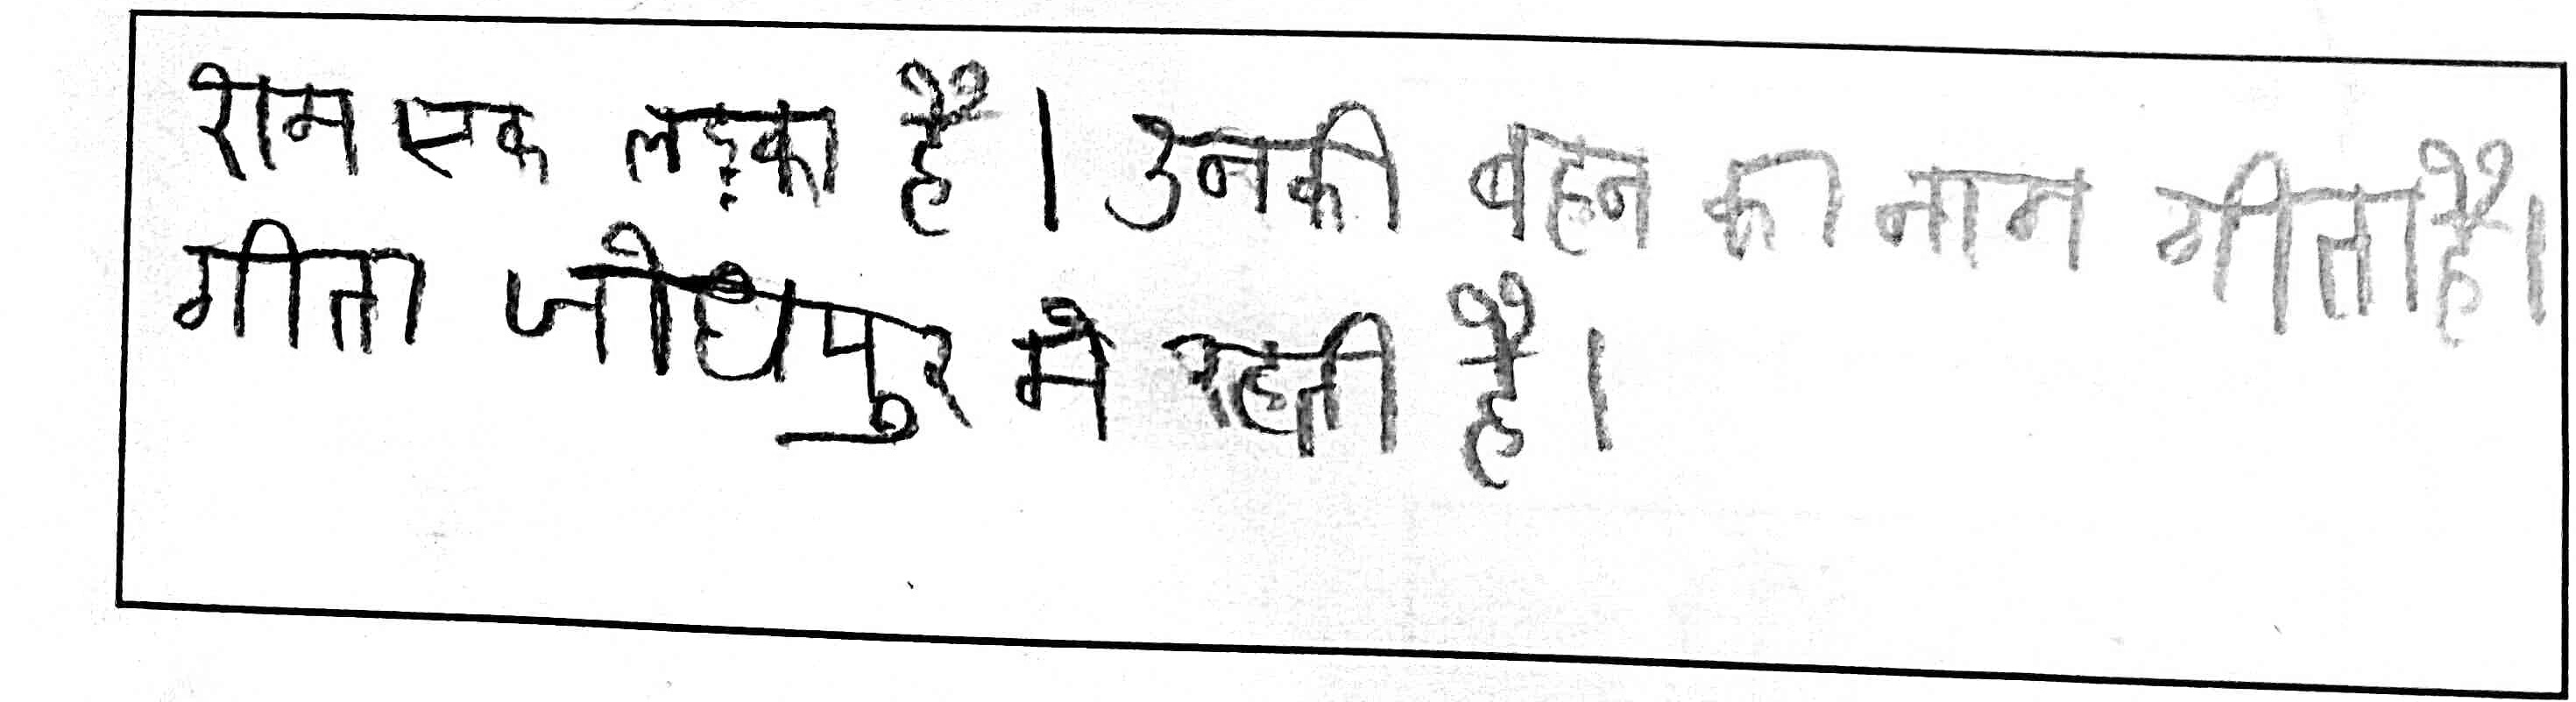 राम एक लड़का है। उनकी बहन का नाम गीता है।
गीता जोधपुर मे रहती है।